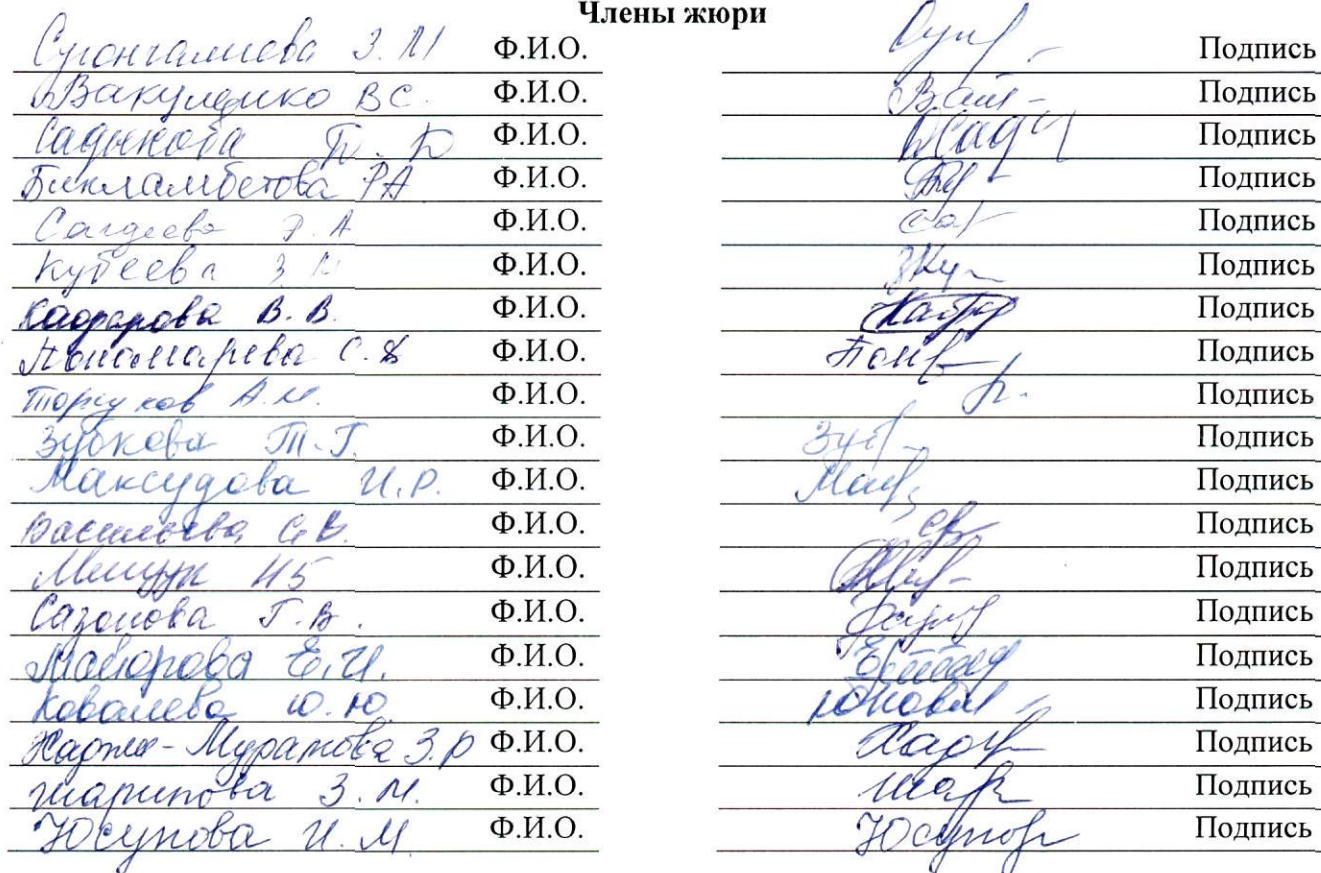 Члены жюри
Суюнгалиева З. М Ф.И.О. Подпись
Вакуленко В С. Ф.И.О. Вак Подпись
Садыкова Ф.И.О. Сад Подпись
Бикламбетова РА Ф.И.О. Подпись
Сагдеева Э. А Ф.И.О. Саг Подпись
Кубеева З Ф.И.О. ЗКу Подпись
В. В. Ф.И.О. Подпись
Пономарева С. Ф.И.О. Пон Подпись
А. М. Ф.И.О. Подпись
Зубкова Т. Г. Ф.И.О. Зуб Подпись
Максудова И. Р. Ф.И.О. Подпись
Васильева С. В. Ф.И.О. СВ Подпись
Мищук НБ Ф.И.О. Подпись
Сазонова Г. В. Ф.И.О. Подпись
Майорова Е. И. Ф.И.О. Подпись
Ковалева Ю. Ю. Ф.И.О. ЮКовал Подпись
Хаджи-Муратова З. Р Ф.И.О. Хад Подпись
Шарипова З. М. Ф.И.О. Шар Подпись
Юсупова И. М Ф.И.О. Юсупов Подпись